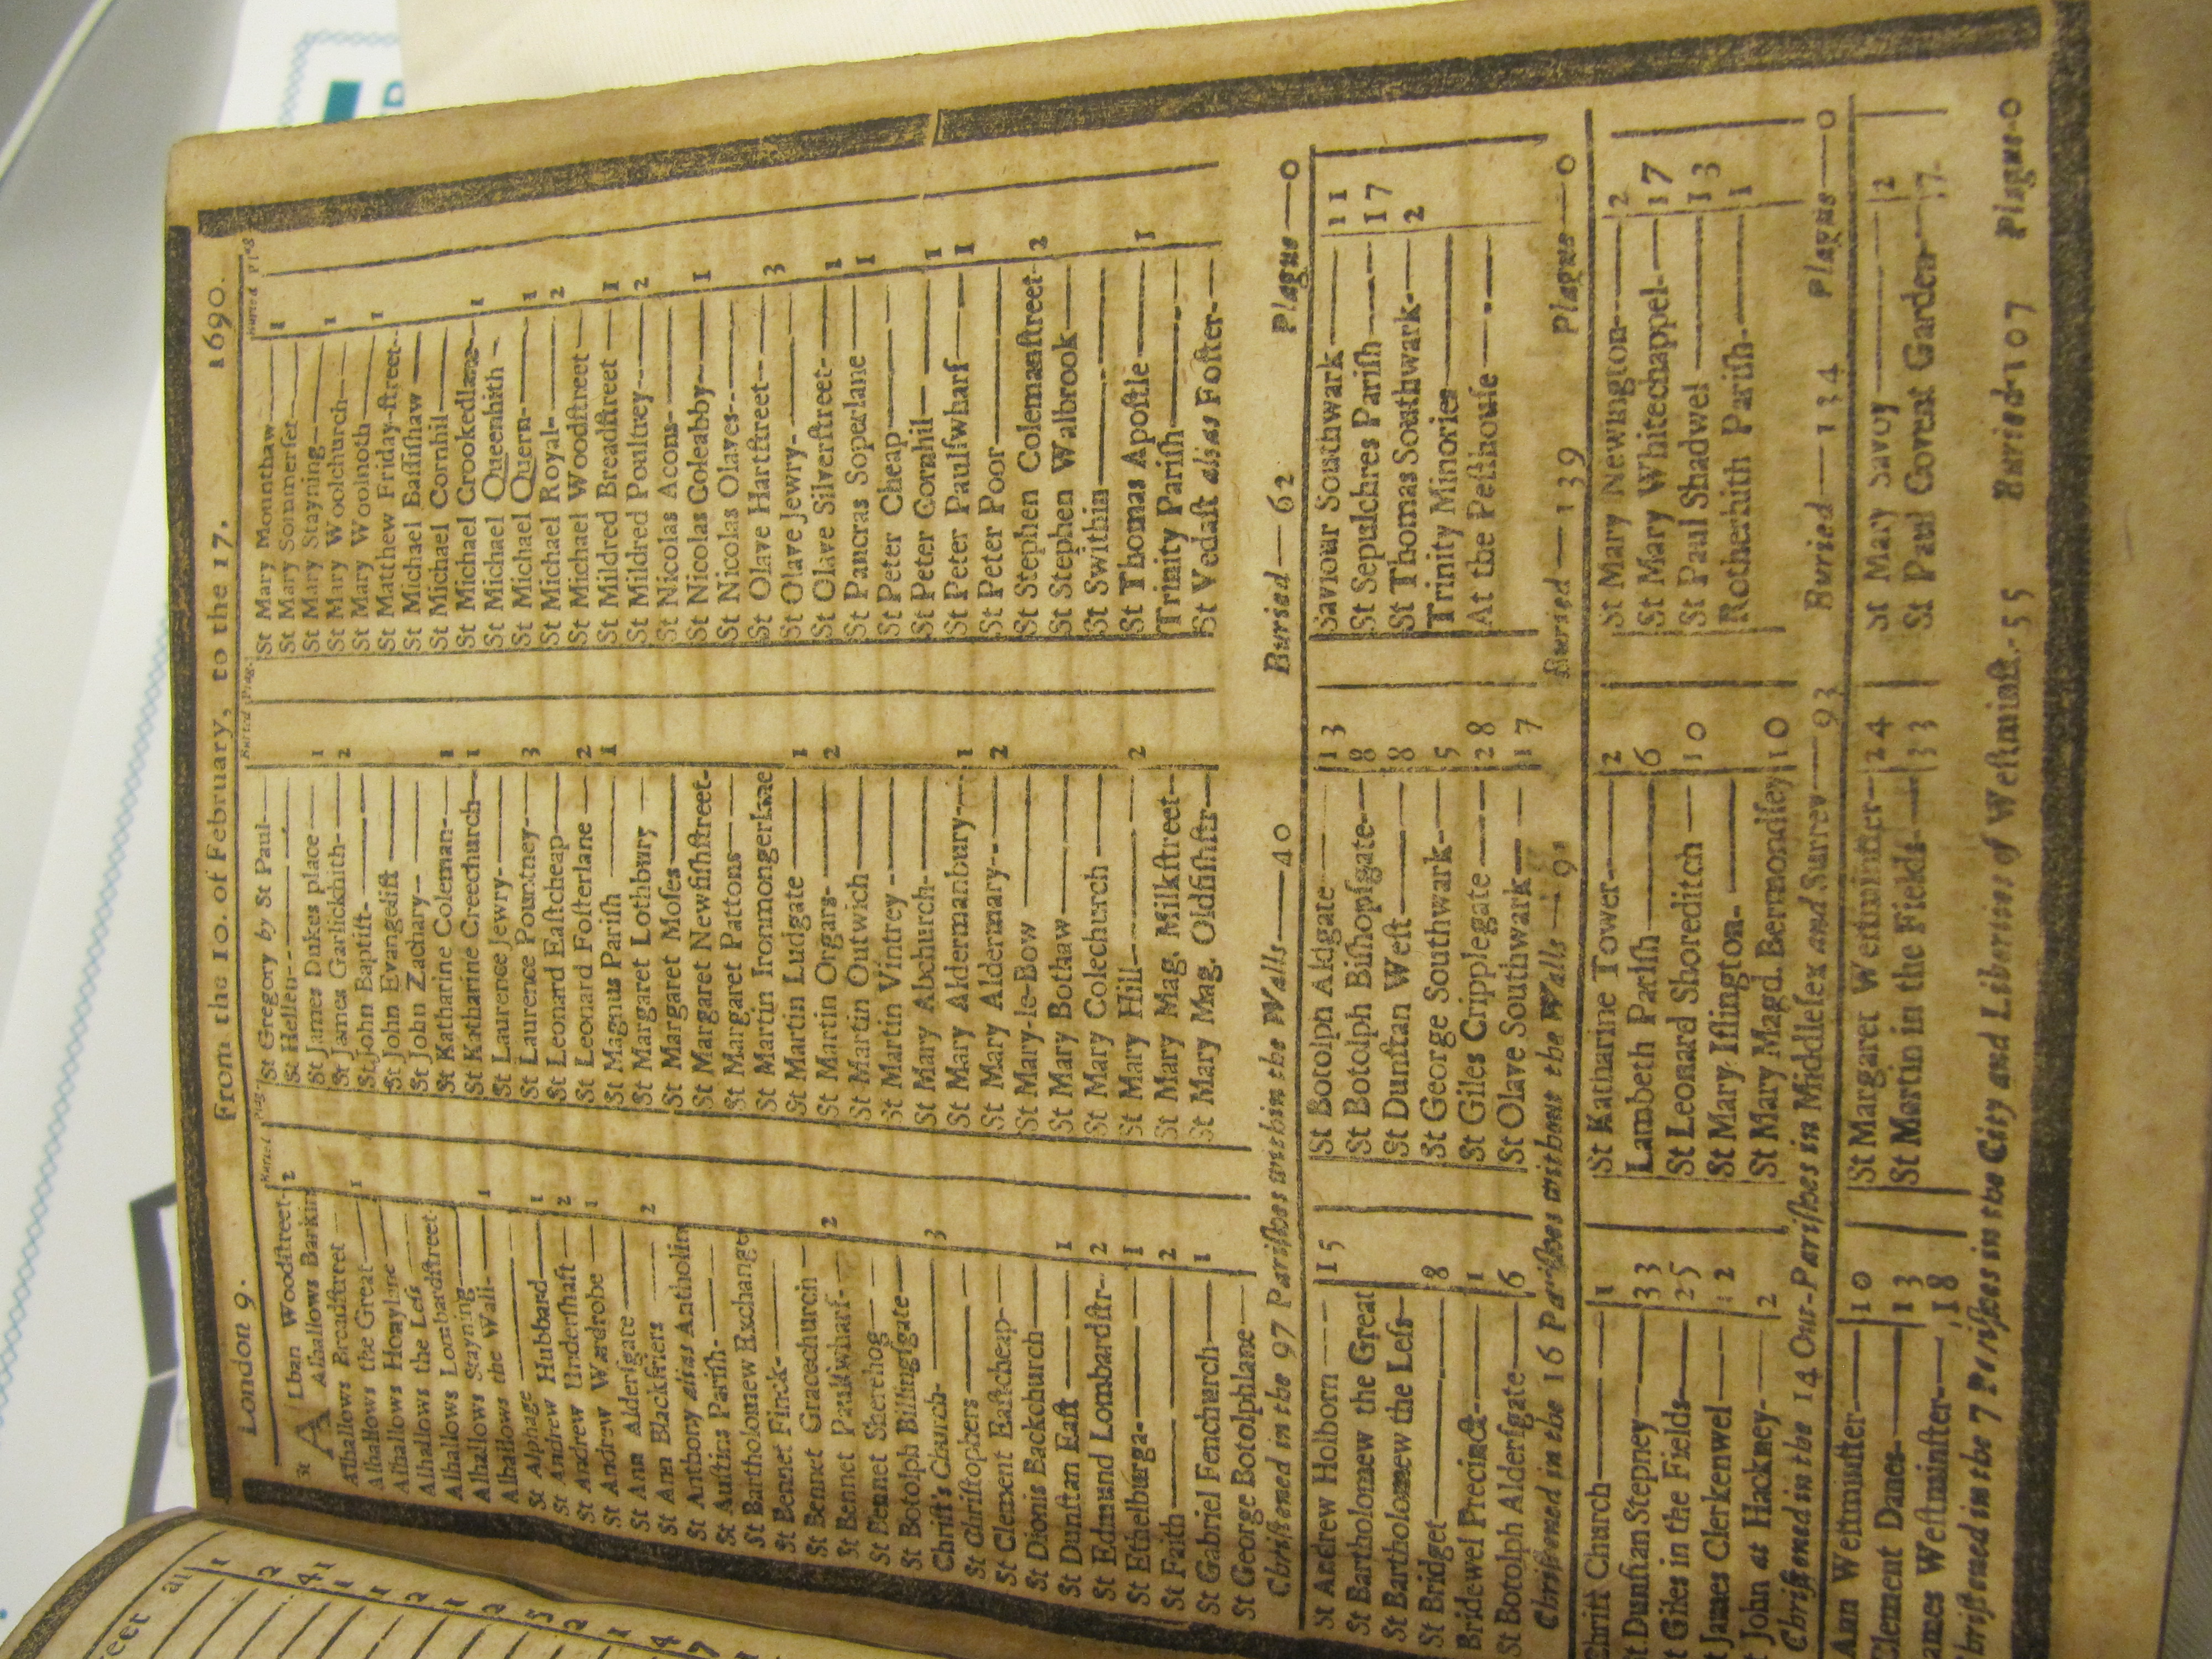 London 9. From the 10. of February, to the 17. 1690.
Buried Plag.
St ALban Woodſtreet- 2
Alhallows Barkin
Alhallows Breadſtreet
Alhallows the Great 1
Alhallows Honylane
Alhallows the Leſs
Alhallows Lombardſtreet
Alhallows Stayning
Alhallows the Wall- 1
St Alphage
St Andrew Hubbard 1
St Andrew Underſhaft 2
St Andrew Wardrobe 1
St Ann Alderſgate
St Ann Blackfriers 2
St Anthony alias Antholin
St Auſtins Pariſh-
St Bartholomew Exchange
St Bennet Finck-
St Bennet Gracechurch 2
St Bennet Paulſwharf-
St Bennet Sherehog
St Botolph Billingſgate
Chriſt's Church- 3
St Chriſtophers
St Clement Eaſtcheap
St Dionis Backchurch
St Dunſtan Eaſt 1
St Edmund Lombardſtr- 2
St Ethelburga- 1
St Faith 2
St Gabriel Fenchurch 1
St George Botolphlane
Buried Plag.
St Gregory by St Paul
St Hellen
St James Dukes place 1
St James Garlickhith- 2
St John Baptiſt-
St John Evangeliſt
St John Zachary
St Katharine Coleman- 1
St Katharine Creechurch 1
St Laurence Jewry-
St Laurence Pountney- 3
St Leonard Eaſtcheap
St Leonard Foſterlane 2
St Magnus Pariſh 1
St Margaret Lothbury
St Margaret Moſes
St Margaret Newfiſhſtreet-
St Margaret Pattons
St Martin Ironmongerlane
St Martin Ludgate 1
St Martin Orgars- 2
St Martin Outwich
St Martin Vintrey
St Mary Abchurch-
St Mary Aldermanbury- 1
St Mary Aldermary- 2
St Mary-le-Bow
St Mary Bothaw
St Mary Colechurch
St Mary Hill- 2
St Mary Mag. Milkſtreet-
St Mary Mag. Oldfiſhſtr
Buried Plag.
St Mary Mounthaw 1
St Mary Sommerſet-
St Mary Stayning 1
St Mary Woolchurch
St Mary Woolnoth 1
St Matthew Friday-ſtreet-
St Michael Baſſiſhaw
St Michael Cornhil
St Michael Crookedlane 1
St Michael Queenhith
St Michael Quern- 1
St Michael Royal- 2
St Michael Woodſtreet
St Mildred Breadſtreet 1
St Mildred Poultrey 2
St Nicolas Acons-
St Nicolas Coleabby 1
St Nicolas Olaves-
St Olave Hartſtreet 3
St Olave Jewry-
St Olave Silverſtreet- 1
St Pancras Soperlane 1
St Peter Cheap
St Peter Cornhil 1
St Peter Paulſwharf 1
St Peter Poor
St Stephen Colemanſtreet- 2
St Stephen Walbrook
St Swithin
St Thomas Apoſtle 1
Trinity Pariſh
St Vedaſt alias Foſter-
Chriſtened in the 97 Pariſhes within the Walls 40 Buried 62 Plague 0
St Andrew Holborn 15
St Bartholomew the Great
St Bartholomew the Leſs
St Bridget 8
Bridewel Precinct 1
St Botolph Alderſgate 6
St Botolph Aldgate 13
St Botolph Biſhopſgate 8
St Dunſtan Weſt 8
St George Southwark- 5
St Giles Cripplegate 28
St Olave Southwark 17
Saviour Southwark 11
St Sepulchres Pariſh 17
St Thomas Southwark- 2
Trinity Minories
At the Peſthouſe
Chriſtened in the 16 Pariſhes without the Walls 91 Buried 139 Plague 0
Chriſt Church 1
St Dunſtan Stepney 33
St Giles in the Fields 25
St James Clerkenwel 12
John at Hackney- 2
St Katharine Tower 2
Lambeth Pariſh 6
St Leonard Shoreditch 10
St Mary Iſlington-
St Mary Magd. Bermondſey 10
St Mary Newington 2
St Mary Whitechappel- 17
St Paul Shadwel 13
Rotherhith Pariſh- 1
Chriſtened in the 14 Out-Pariſhes in Middleſex and Surrey 93 Buried 134 Plague 0
Ann Weſtminſter 10
Clement Danes 13
James Weſtminſter 18
St Margaret Weſtminſter 24
St Martin in the Fields- 33
St Mary Savoy 2
St Paul Covent Garden 7
Chriſtened in the 7 Pariſhes in the City and Liberties of Weſtminſt.- 55 Buried 107 Plague 0